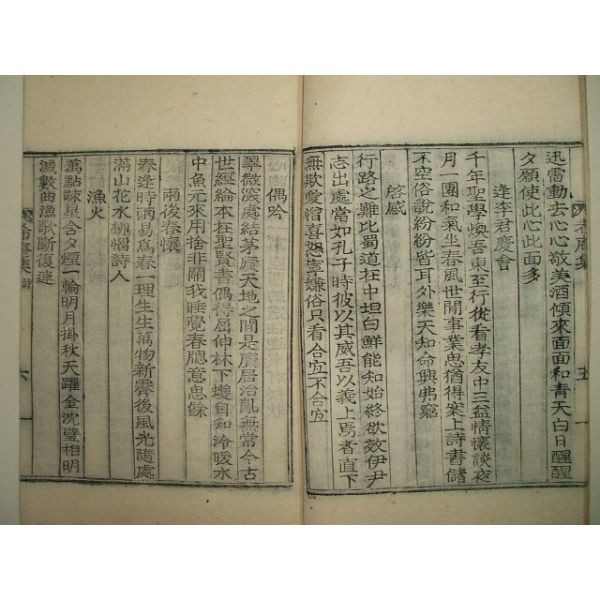 迅雷動去心心敬美酒傾來面面和青天白日醒醒
夕願使此心此面多
逢李君慶會
千年聖學煥吾東至行從看孝友中三益情懷談夜
月一團和氣坐春風世間事業思猶得案上詩書儲
不空俗說紛紛皆耳外樂天知命興弗窮
啓感
行路之難比蜀道在中坦白鮮能知始終欲效伊尹
志出處當如孔子時彼以其威吾以義上爲者直下
無欺愛憎喜怒
嫌俗只看合宜不合宜
偶吟
翠微深處結茅庋天地之間是廣居治亂無常今古
世經綸本在聖賢書偶得屈伸林下蠖自知冷暖水
中魚元來用捨非關我睡覺春牕意思餘
雨後春懷
春逢時雨易爲春一理生生萬物新霽後風光隨處
滿山花水
詩人
漁火
萬點疎星含夕煙一輪明月掛秋天躍金沈璧相明
滅數曲漁歌斷復連